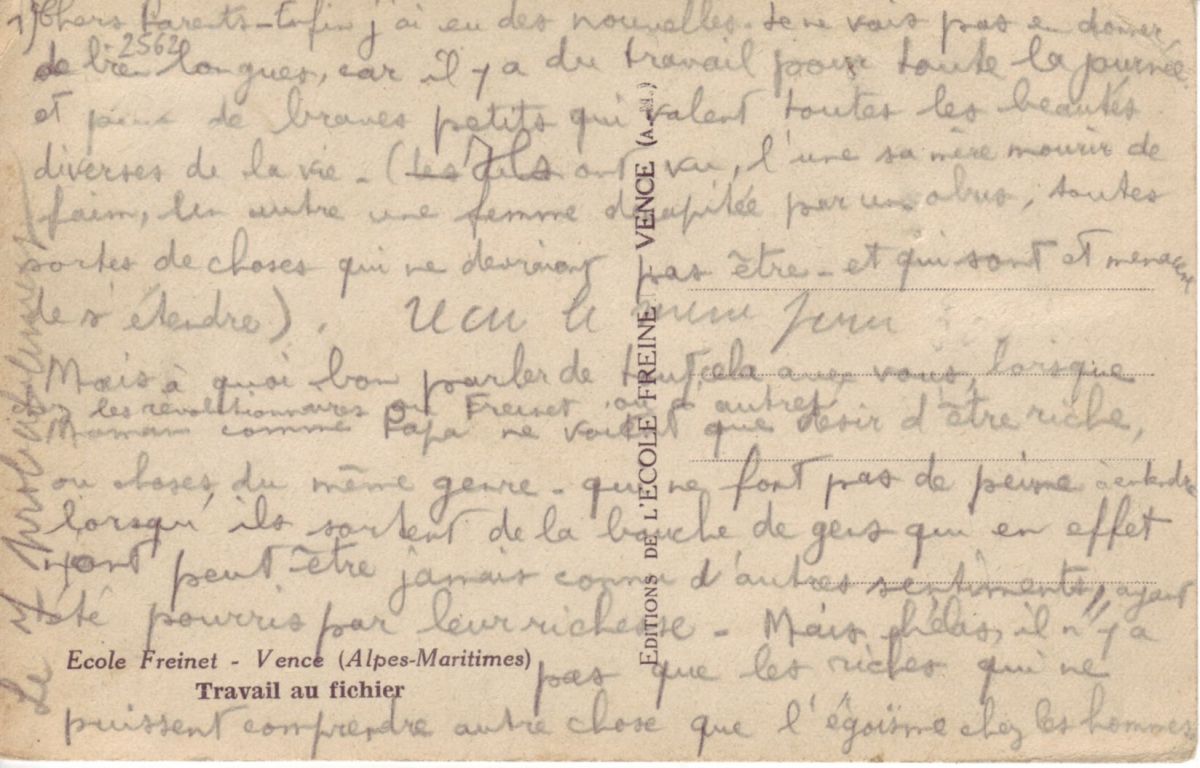 1) Chers Parents - Enfin j'ai eu des nouvelles. Je ne vais pas en donner
2562
de bien longues, car il y a du travail pour toute la journée
et pour de braves petits qui valent toutes les beautés
diverses de la vie - (Les Ils ont vu, l'une sa mère mourir de
faim, un autre une femme décapitée par un obus, toutes
sortes de choses qui ne devraient pas être - et qui sont et menacent
de s'étendre).
Mais à quoi bon parler de tout cela avec vous, lorsque
les révolutionnaires ou Freinet ou autres
Maman comme Papa ne voient que désir d'être riche,
ou choses du même genre - qui ne font pas de peine à entendre
lorsqu'ils sortent de la bouche de gens qui en effet
n'ont peut être jamais connu d'autres sentiments, ayant
été pourris par leur richesse - Mais hélas, il n'y a
pas que les riches qui ne
puissent comprendre autre chose que l'égoïsme chez les hommes
Ecole Freinet - Vence (Alpes-Maritimes)
Travail au fichier
EDITIONS DE L'ECOLE FREINET - VENCE (A.-M.)
Le